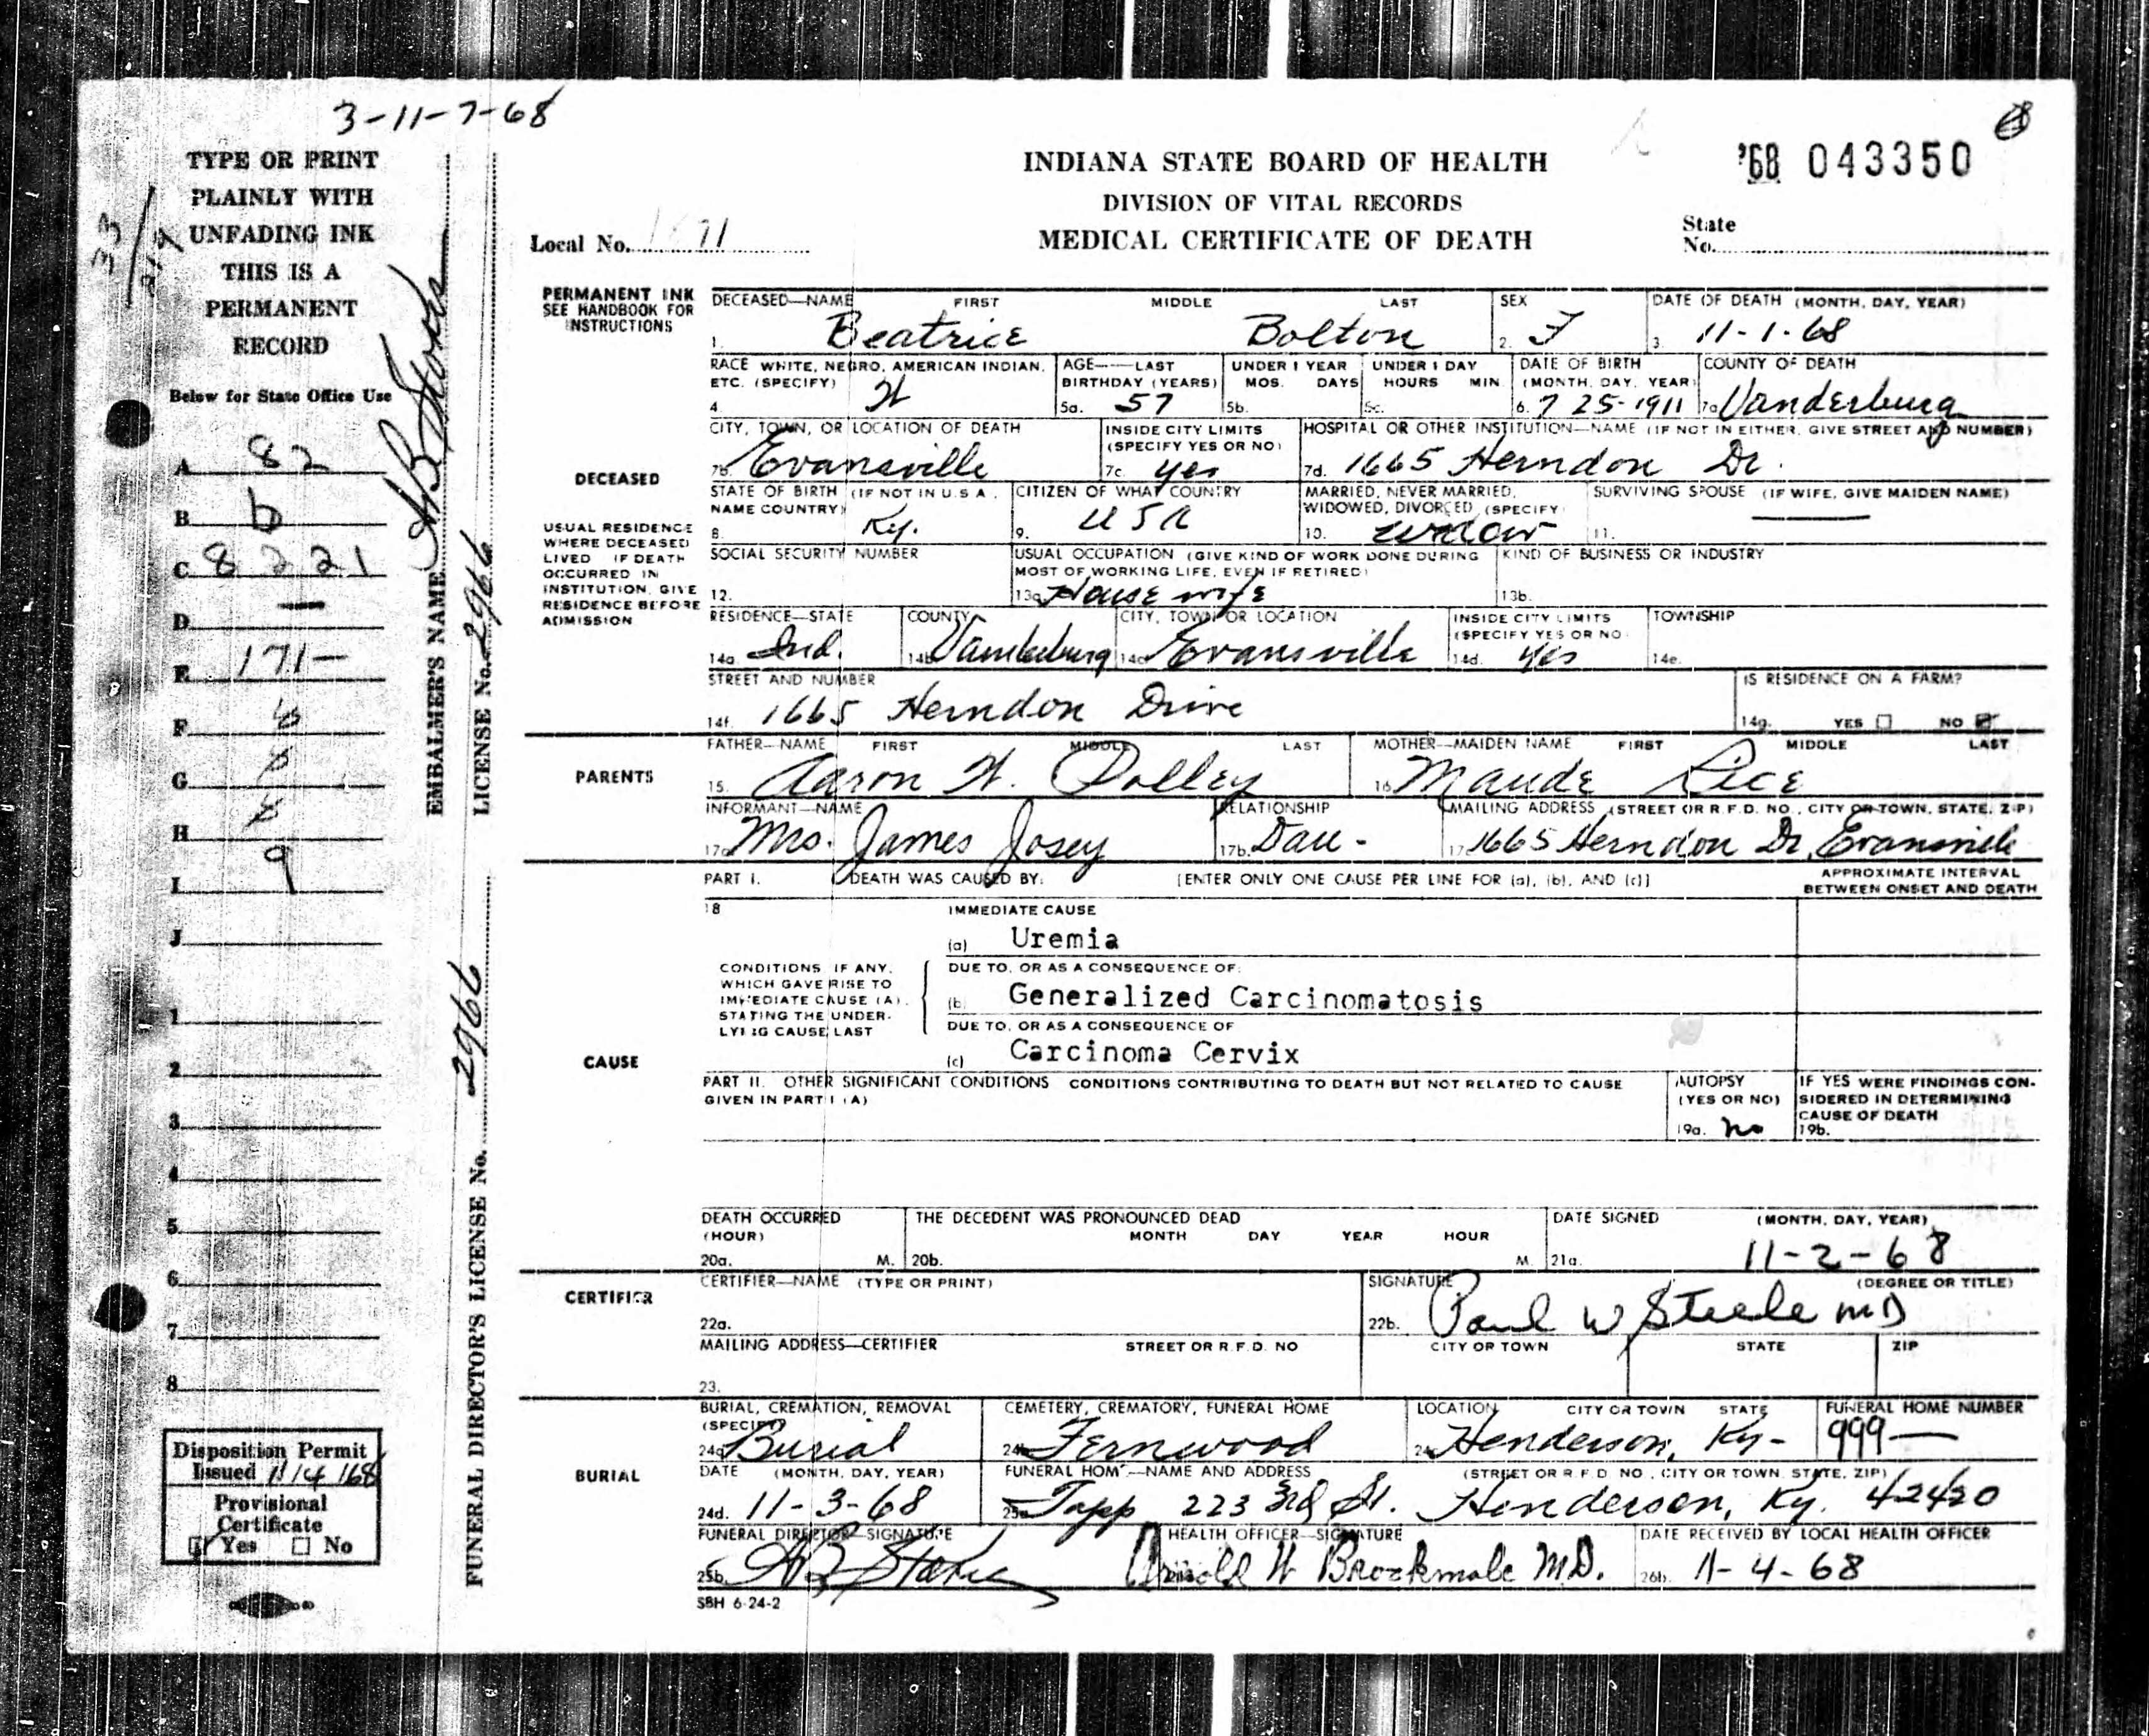 3-11-7-68
TYPE OR PRINT
PLAINLY WITH
UNFADING INK
THIS IS A
PERMANENT
RECORD
Below for State Office Use
A 82
B b
C 8221
D —
E 171-
F
G
H
I 9
J
1
2
3
4
5
6
7
8
Disposition Permit
Issued 11/4/68
Provisional
Certificate
Yes No
EMBALMER'S NAME
LICENSE No. 2966
FUNERAL DIRECTOR'S LICENSE No. 2966
INDIANA STATE BOARD OF HEALTH
DIVISION OF VITAL RECORDS
MEDICAL CERTIFICATE OF DEATH
'68 043350
Local No.
State
No.
PERMANENT INK
SEE HANDBOOK FOR
INSTRUCTIONS
DECEASED—NAME FIRST MIDDLE LAST SEX DATE OF DEATH (MONTH, DAY, YEAR)
1. Beatrice Bolton 2. F 3. 11-1-68
RACE WHITE, NEGRO, AMERICAN INDIAN, AGE—LAST UNDER 1 YEAR UNDER 1 DAY DATE OF BIRTH COUNTY OF DEATH
ETC. (SPECIFY) BIRTHDAY (YEARS) MOS. DAYS HOURS MIN. (MONTH, DAY, YEAR)
4. W 5a. 57 5b. 5c. 6. 7 25-1911 7a. Vanderburg
CITY, TOWN, OR LOCATION OF DEATH INSIDE CITY LIMITS HOSPITAL OR OTHER INSTITUTION—NAME (IF NOT IN EITHER, GIVE STREET AND NUMBER)
(SPECIFY YES OR NO)
DECEASED
7b. Evansville 7c. yes 7d. 1665 Herndon Dr.
STATE OF BIRTH (IF NOT IN U.S.A., CITIZEN OF WHAT COUNTRY MARRIED, NEVER MARRIED, SURVIVING SPOUSE (IF WIFE, GIVE MAIDEN NAME)
NAME COUNTRY) WIDOWED, DIVORCED (SPECIFY)
8. Ky. 9. USA 10. widow 11. —
USUAL RESIDENCE
WHERE DECEASED
LIVED IF DEATH
OCCURRED IN
INSTITUTION, GIVE
RESIDENCE BEFORE
ADMISSION
SOCIAL SECURITY NUMBER USUAL OCCUPATION (GIVE KIND OF WORK DONE DURING KIND OF BUSINESS OR INDUSTRY
MOST OF WORKING LIFE, EVEN IF RETIRED)
12. 13a. House wife 13b.
RESIDENCE—STATE COUNTY CITY, TOWN OR LOCATION INSIDE CITY LIMITS TOWNSHIP
(SPECIFY YES OR NO)
14a. Ind. 14b. Vanderburg 14c. Evansville 14d. yes 14e.
STREET AND NUMBER IS RESIDENCE ON A FARM?
14f. 1665 Herndon Drive 14g. YES NO
PARENTS
FATHER—NAME FIRST MIDDLE LAST MOTHER—MAIDEN NAME FIRST MIDDLE LAST
15. Aaron W. Polley 16. Maude Rice
INFORMANT—NAME RELATIONSHIP MAILING ADDRESS (STREET OR R.F.D. NO., CITY OR TOWN, STATE, ZIP)
17a. Mrs. James Josey 17b. Dau- 17c. 1665 Herndon Dr, Evansville
PART I. DEATH WAS CAUSED BY: [ENTER ONLY ONE CAUSE PER LINE FOR (a), (b), AND (c)] APPROXIMATE INTERVAL
BETWEEN ONSET AND DEATH
18 IMMEDIATE CAUSE
(a) Uremia
CONDITIONS IF ANY,
WHICH GAVE RISE TO
IMMEDIATE CAUSE (A),
STATING THE UNDER-
LYING CAUSE LAST
DUE TO, OR AS A CONSEQUENCE OF:
(b) Generalized Carcinomatosis
DUE TO, OR AS A CONSEQUENCE OF
CAUSE
(c) Carcinoma Cervix
PART II. OTHER SIGNIFICANT CONDITIONS CONDITIONS CONTRIBUTING TO DEATH BUT NOT RELATED TO CAUSE
GIVEN IN PART I (A)
AUTOPSY
(YES OR NO)
19a. no
IF YES WERE FINDINGS CON-
SIDERED IN DETERMINING
CAUSE OF DEATH
19b.
DEATH OCCURRED THE DECEDENT WAS PRONOUNCED DEAD DATE SIGNED (MONTH, DAY, YEAR)
(HOUR) MONTH DAY YEAR HOUR
20a. M. 20b. M. 21a. 11-2-68
CERTIFIER
CERTIFIER—NAME (TYPE OR PRINT) SIGNATURE (DEGREE OR TITLE)
22a. 22b. Paul W Steele MD
MAILING ADDRESS—CERTIFIER STREET OR R.F.D. NO CITY OR TOWN STATE ZIP
23.
BURIAL
BURIAL, CREMATION, REMOVAL CEMETERY, CREMATORY, FUNERAL HOME LOCATION CITY OR TOWN STATE FUNERAL HOME NUMBER
(SPECIFY)
24a. Burial 24b. Fernwood 24c. Henderson, Ky- 999—
DATE (MONTH, DAY, YEAR) FUNERAL HOME—NAME AND ADDRESS (STREET OR R.F.D. NO., CITY OR TOWN, STATE, ZIP)
24d. 11-3-68 25a. Tapp 223 3rd St. Henderson, Ky. 42420
FUNERAL DIRECTOR—SIGNATURE HEALTH OFFICER—SIGNATURE DATE RECEIVED BY LOCAL HEALTH OFFICER
25b. 26b. 11-4-68
SBH 6-24-2